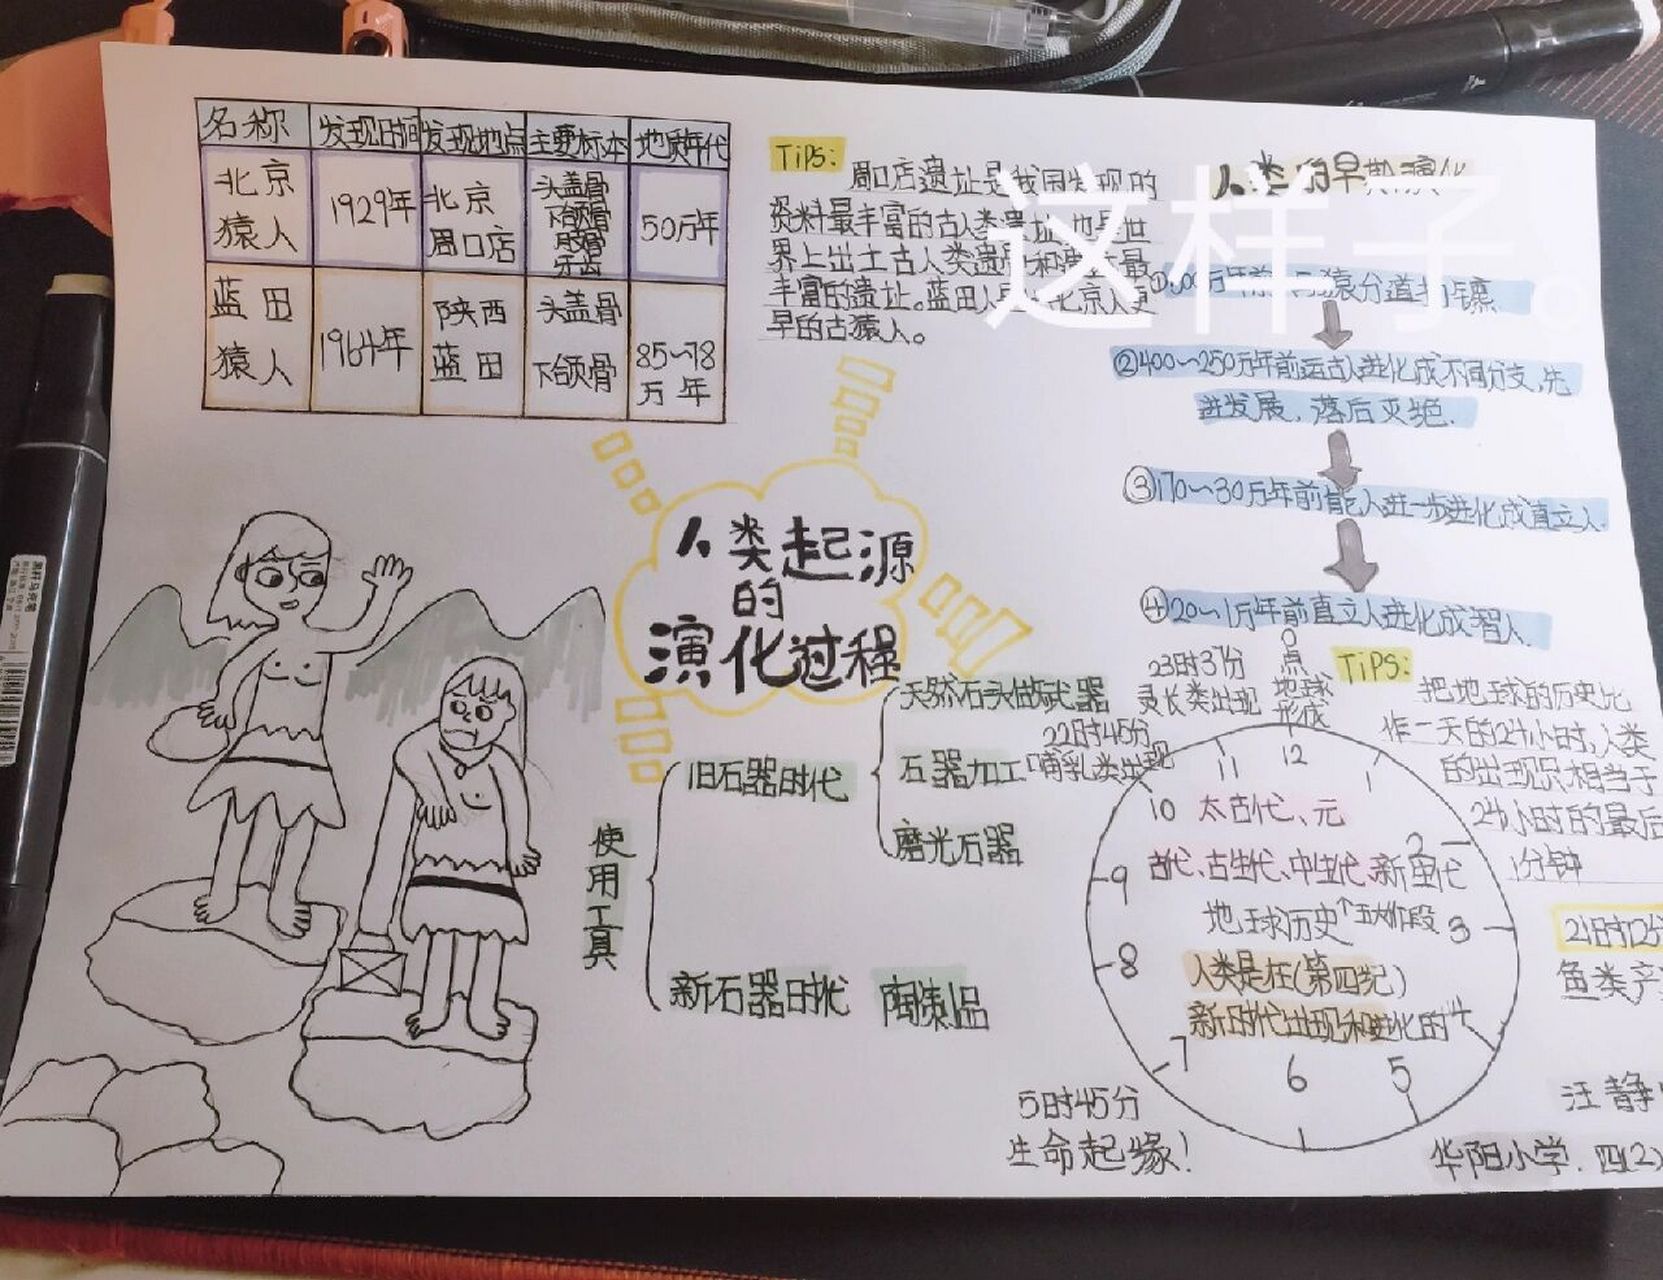 名称 发现时间 发现地点 主要标本 地质年代
北京
猿人
1929年
北京
周口店
头盖骨
下颌骨
牙齿
50万年
蓝田
猿人
1964年
陕西
蓝田
头盖骨
下颌骨
85~78
万年
TiPS:
周口店遗址是我国发现的
资料最丰富的古人类遗址,也是世
界上出土古人类遗骨和遗迹最
丰富的遗址。蓝田人是比北京人更
早的古猿人。
这样子。
人类的早期演化
猿分道扬镳
②400~250万年前远古人进化成不同分支,先
进发展,落后灭绝.
③170~30万年前能人进一步进化成直立人.
④20~1万年前直立人进化成智人.
人类起源
的
演化过程
使用工具
旧石器时代
天然石头做武器
石器加工
磨光石器
新石器时代 陶制品
0点
地球
形成
23时37分
灵长类出现
22时45分
哺乳类出现
TiPS:
把地球的历史比
作一天的24小时,人类
的出现只相当于
24小时的最后
1分钟
12
1
2
3
4
5
6
7
8
9
10
11
太古代、元
古代、古生代、中生代、新生代
地球历史↑五大阶段
人类是在(第四纪)
新时代出现和进化的
21时12分
鱼类产
5时45分
生命起缘!
汪静
华阳小学.四(2)